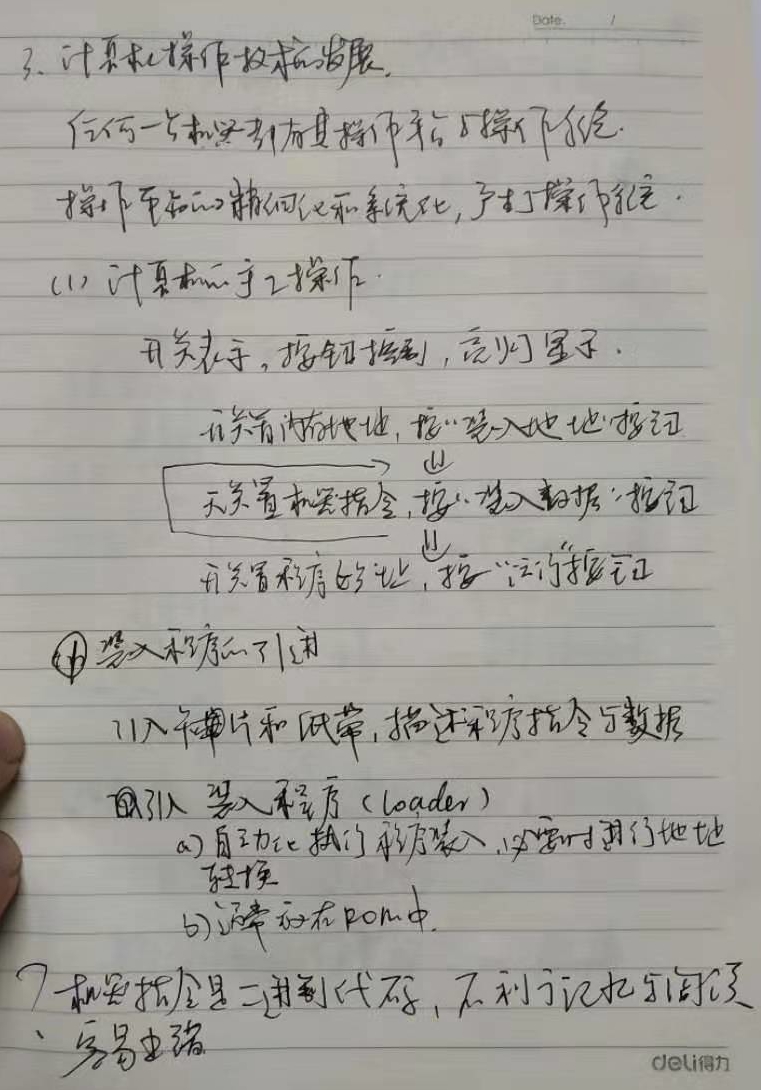 Date. /
3、计算机操作技术的发展.
任何一台机器都有其操作平台与操作系统.
操作平台的精细化和系统化,产生了操作系统.
(1) 计算机的手工操作.
开关表示,按钮控制,亮灯显示.
开关置内存地址,按“装入地址”按钮
开关置机器指令,按“装入数据”按钮
开关置程序的址,按“运行”按钮
装入程序的引进
引入卡片和纸带,描述程序指令与数据
引入 装入程序(loader)
a)自动化执行程序装入,必要时进行地址
转换
b)通常放在ROM中.
机器指令是二进制代码,不利于记忆与阅读
容易出错
deli得力